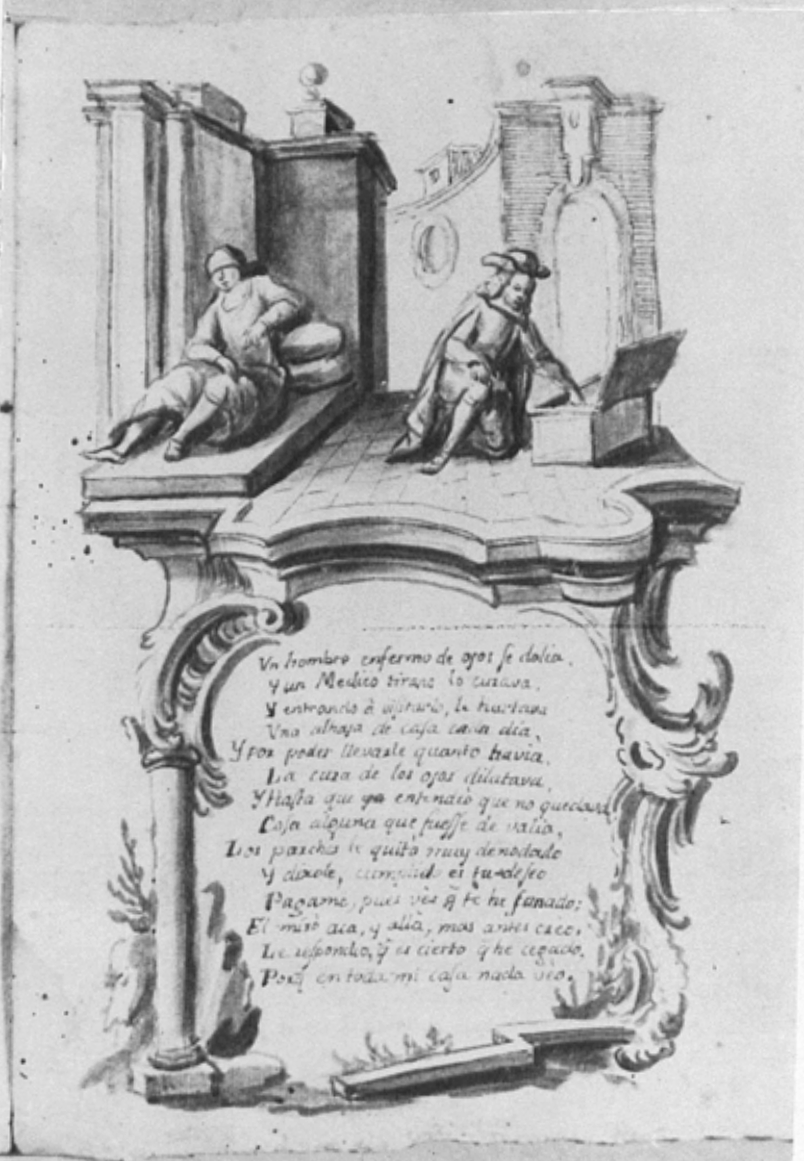 Vn hombre enfermo de ojos se dolia,
Y un Medico tirano lo curava,
Y entrando à visitarlo, le hurtava
Vna alhaja de casa cada dia,
Y por poder llevarle quanto havia,
La cura de los ojos dilatava,
Y hasta que ya entendio que no quedava
Cosa alguna que fuesse de valia,
Los parches le quitò muy denodado
Y dixole, cumplido es tu deseo
Pagame, pues ves q̃ te he sanado;
El mirò aca, y alla, mas antes creo,
Le respondio, q̃ es cierto q̃ he cegado,
Porq̃ en toda mi casa nada veo.